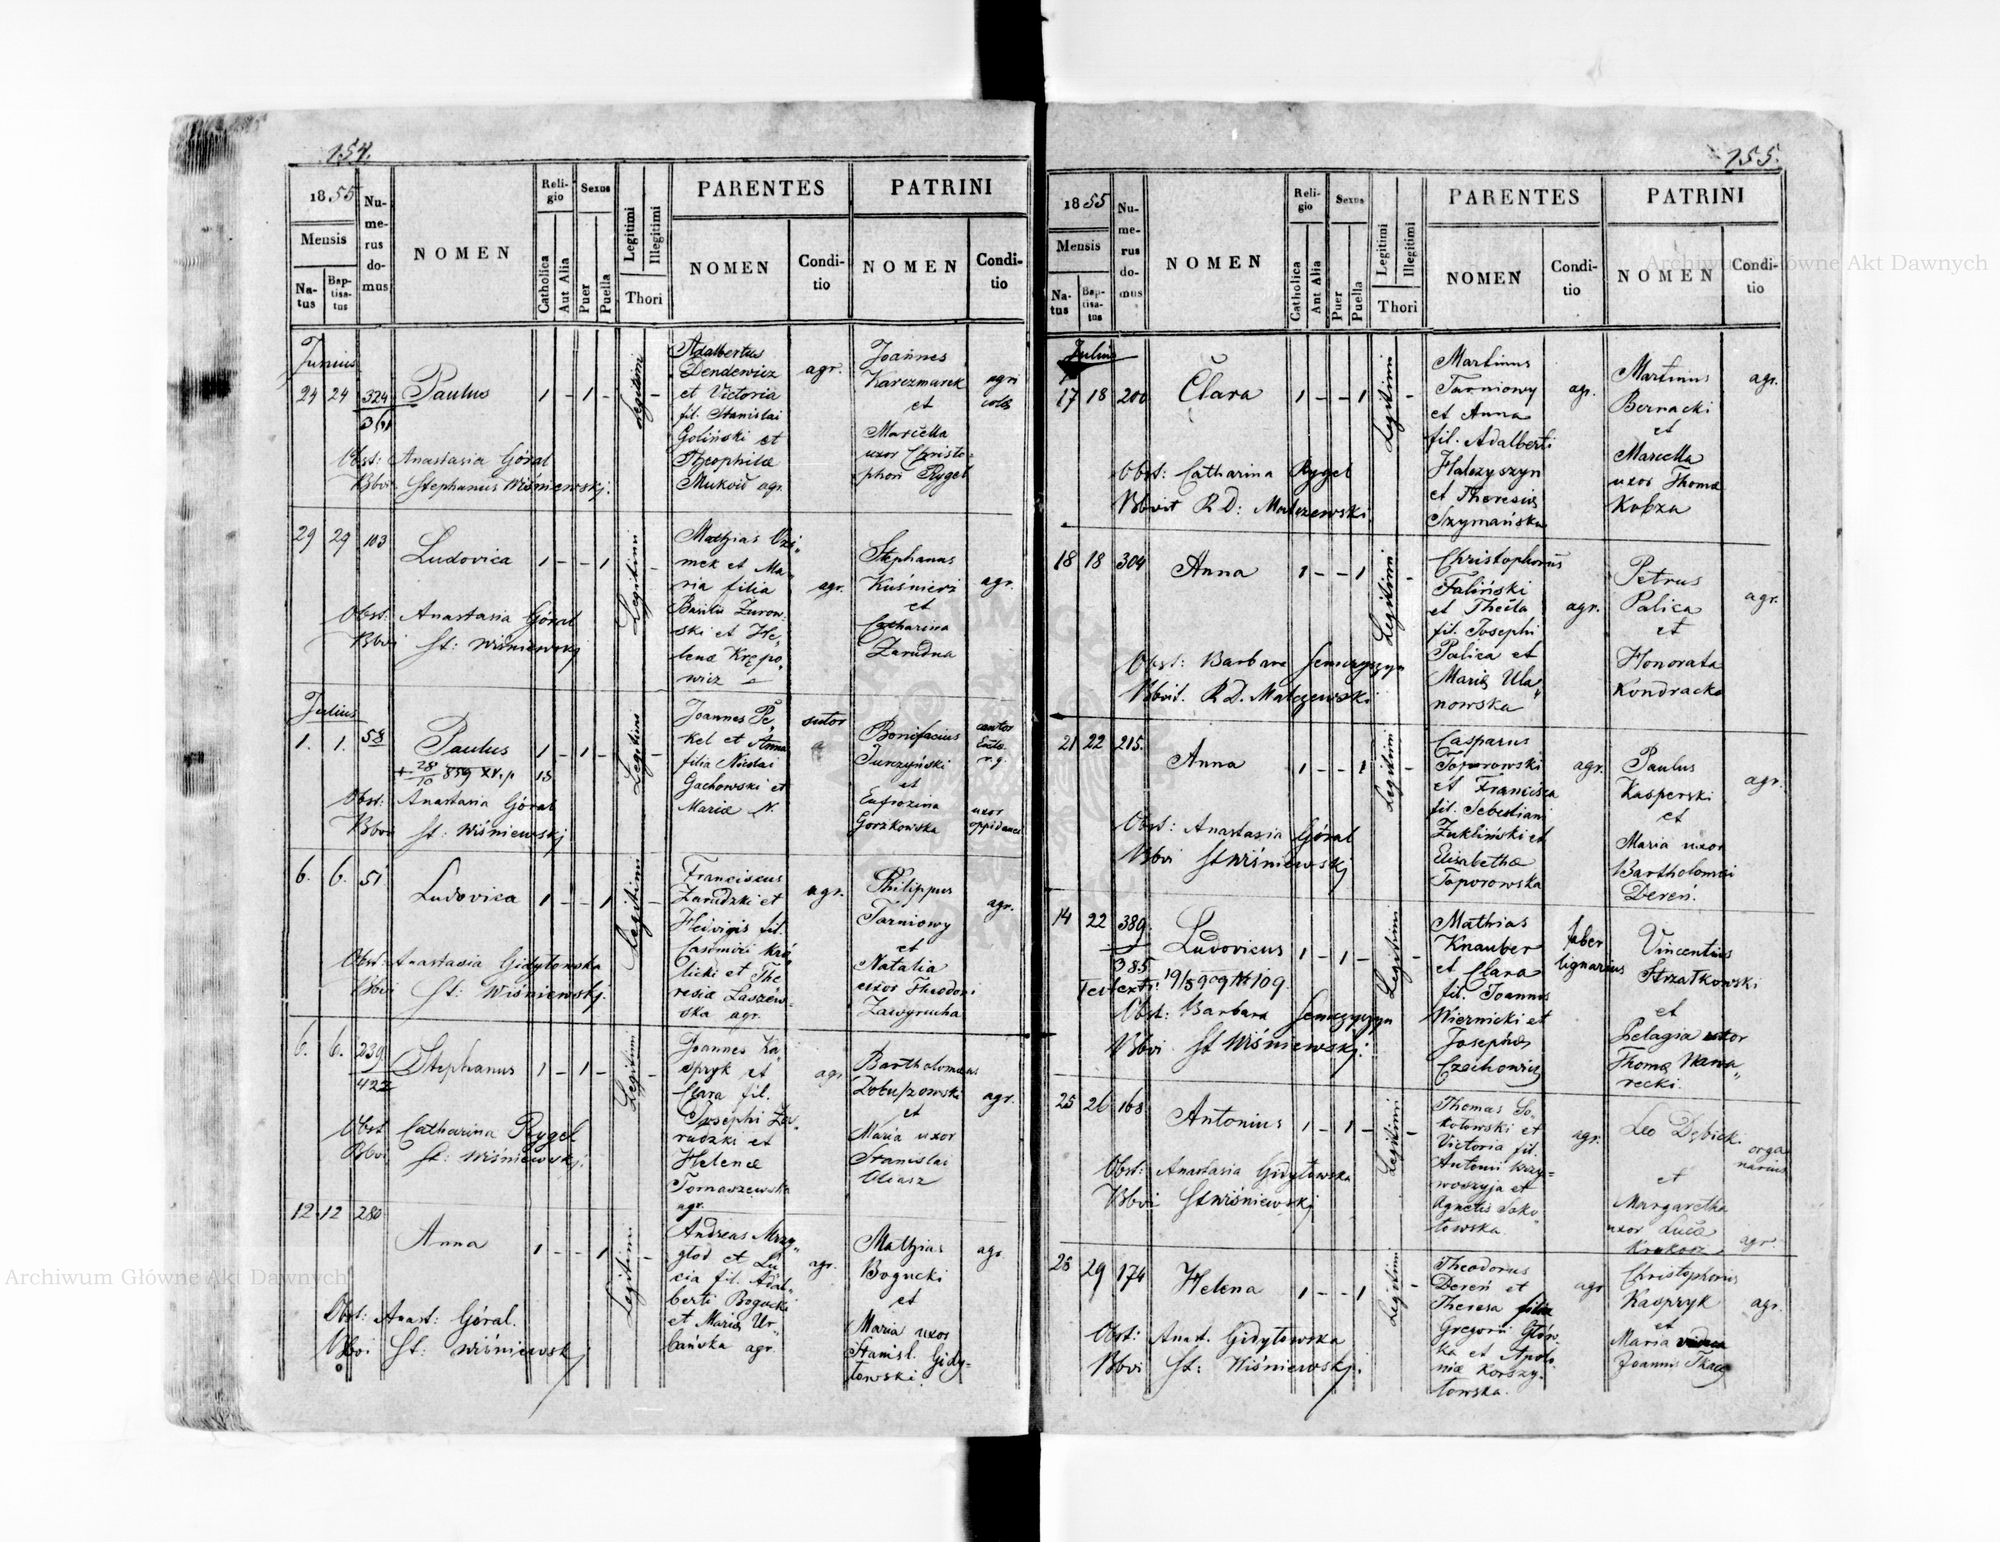 154.
1855
Mensis
Na-
tus
Bap-
tisa-
tus
Nu-
me-
rus
do-
mus
NOMEN
Reli-
gio
Catholica
Aut Alia
Sexus
Puer
Puella
Legitimi
Illegitimi
Thori
PARENTES
NOMEN
Condi-
tio
PATRINI
NOMEN
Condi-
tio
Junius
24 24 324 Paulus 1 - 1 - Legitimi -
361
Obst: Anastasia Góral
Bbvi Stephanus Wiśniewskj.
Adalbertus
Dendewicz
et Victoria
fil. Stanislai
Goliński et
Theophilæ
agr.
agr.
Joannes
Karczmarek
et
Marcella
uxor Christo-
phori Rygel
agri
colæ
29 29 103 Ludovica 1 - - 1 Legitimi -
Obst: Anastasia Góral
Bbvi St: Wiśniewskj
Mathias Uzi„
mek et Ma„
ria filia
Basilii Zurow-
ski et He„
lenæ Krępo„
wicz
agr.
Stephanus
Kuśnierz
et
Catharina
Zarudna
agr.
Julius
1. 1. 58 Paulus 1 - 1 - Legitimi -
+ 28/10 859
Obst: Anastasia Góral
Bbvi St: Wiśniewskj
Joannes Pe„
kel et Anna
filia Nicolai
Gachowski et
Mariæ N.
sutor
Bonifacius
Jurczyński
et
Eufrozina
Gorzkowska
cantor
uxor
oppidanea
6. 6. 51 Ludovica 1 - - 1 Legitimi -
Obst: Anastasia Gidytowska
Bbvi St: Wiśniewskj.
Franciscus
Zarudzki et
Hedvigis fil.
Casimiri Kró„
licki et The
resiæ Laszew-
ska agr.
agr.
Philippus
Tarniowy
et
Natalia
uxor Theodori
Zawgrucha
agr.
6. 6. 239 Stephanus 1 - 1 - Legitimi -
422
Obst Catharina Rygel
Bbvi St: Wiśniewskj.
Joannes Ka„
spryk et
Clara fil.
Josephi Za„
rudzki et
Helenæ
Tomaszewska
agr.
agr
Bartholomæus
et
Maria uxor
Stanislai
Oliasz
agr.
12 12 280 Anna 1 - - 1 Legitimi -
Obst: Anast: Góral.
Bbvi St: Wiśniewskj
Andreas Mrzy„
głod et Lu
cia fil. Adal„
berti Bogucki
et Mariæ Ur„
bańska agr.
agr.
Mathias
Bogucki
et
Maria uxor
Stanisl. Gidy-
towski.
agr.
155.
1855
Mensis
Na-
tus
Bap-
tisa-
tus
Nu-
me-
rus
do-
mus
NOMEN
Reli-
gio
Catholica
Aut Alia
Sexus
Puer
Puella
Legitimi
Illegitimi
Thori
PARENTES
NOMEN
Condi-
tio
PATRINI
NOMEN
Condi-
tio
Julius
17 18 200 Clara 1 - - 1 Legitimi -
Obst: Catharina Rygel
Bbvit R D: Malczewski
Martinus
Tarniowy
et Anna
fil. Adalberti
Halczyszyn
et Theresiæ
Szymańska
agr.
Martinus
Bernacki
et
Marcella
uxor Thomæ
Kobza
agr.
18 18 304 Anna 1 - - 1 Legitimi -
Obst: Barbara Semczyszyn
Bbvit. R D. Malczewski
Christophorus
Faliński
et Thecla
fil. Josephi
Palica et
Mariæ Ula„
nowska
agr.
Petrus
Palica
et
Honorata
Kondracka
agr.
21 22 215. Anna 1 - - 1 Legitimi -
Obst: Anastasia Góral
Bbvi St Wiśniewskj
Casparus
Toporowski
et Francisca
fil. Sebestiani
Zukliński et
Elisabethæ
Toporowska
agr.
Paulus
Kasperski
et
Maria uxor
Bartholomæi
Dereń.
agr.
14 22 389 Ludovicus 1 - 1 - Legitimi -
385
Test. extr: 19/5 909 N 109.
Obst: Barbara Semczyszyn
Bbvi St Wiśniewskj.
Mathias
Knauber
et Clara
fil. Joannis
Wiernicki et
Josephæ
Czechowicz
faber
lignarius
Vincentius
Strzałkowski
et
Pelagia uxor
Thomæ Nawa„
recki.
25 26 168 Antonius 1 - 1 - Legitimi -
Obst: Anastasia Gidytowska
Bbvi St Wiśniewskj
Thomas So„
kołowski et
Victoria fil.
Antonii Krzy-
woszyja et
Agnetis Soko„
łowska.
agr.
Leo Dębicki
et
Margaretha
uxor Lucæ
Krokosz
orga
narius
agr.
28 29 174 Helena 1 - - 1 Legitimi -
Obst: Anast. Gidytowska
Bbvi St: Wiśniewskj.
Theodorus
Dereń et
Theresa filia
Gregorii Głów„
ka et Apolo
niæ Korszy-
łowska.
agr
Christophorus
Kaspryk
et
Maria vidua
Joannis Tkacz
agr.
Archiwum Główne Akt Dawnych
Archiwum Główne Akt Dawnych